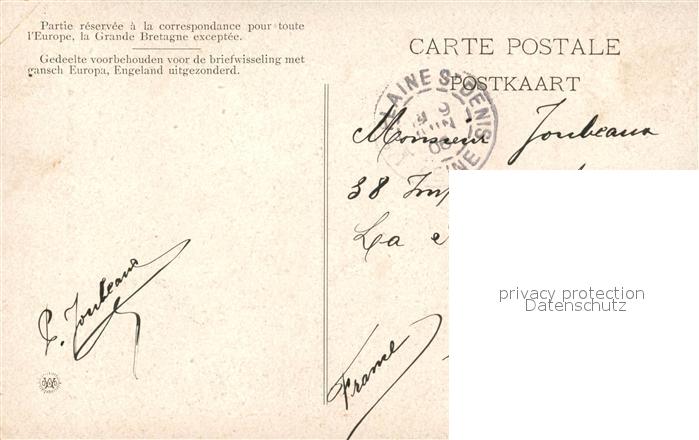 Partie réservée à la correspondance pour toute
l'Europe, la Grande Bretagne exceptée.
Gedeelte voorbehouden voor de briefwisseling met
gansch Europa, Engeland uitgezonderd.
CARTE POSTALE
POSTKAART
LAINE ST DENIS
9
JUIN
Monsieur Joubeaux
38 Imp
La
privacy protection
Datenschutz
Joubeaux
France